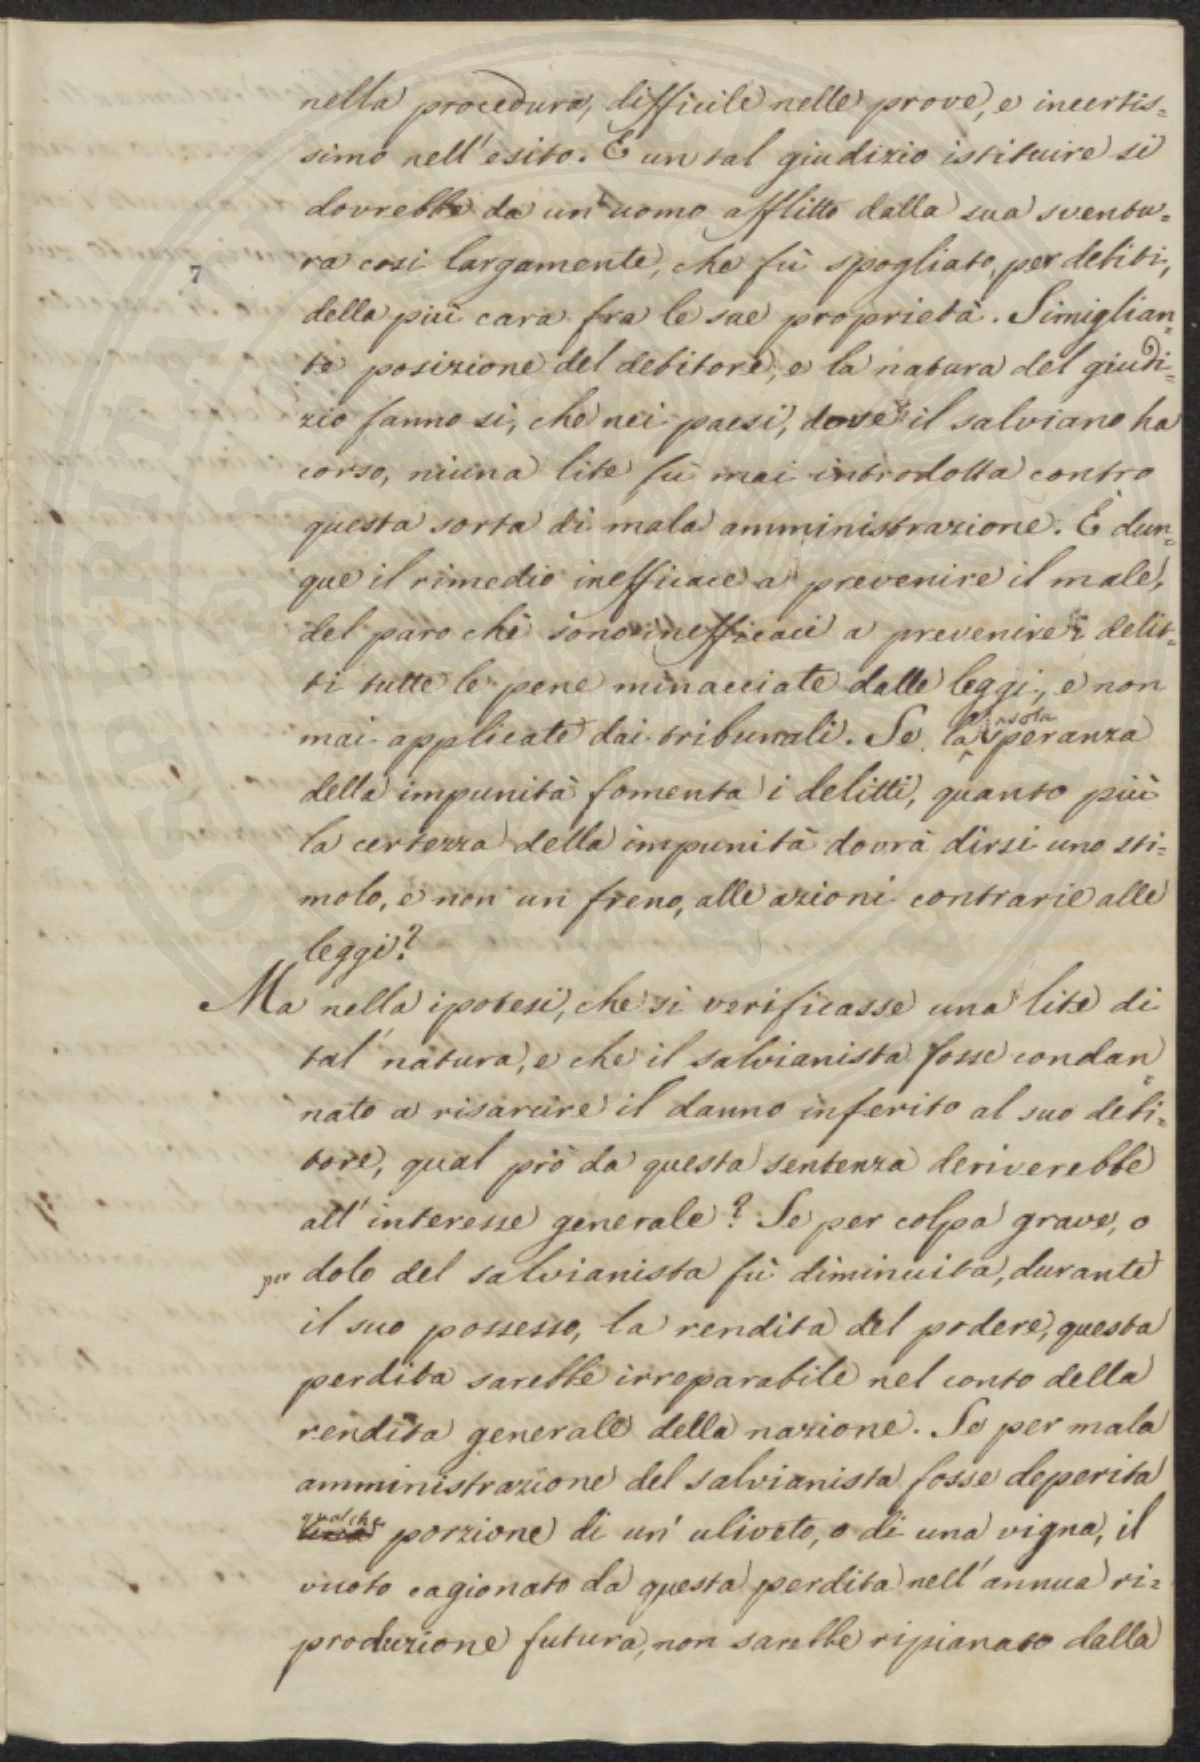 nella procedura, difficile nelle prove, e incertis=
simo nell'esito. E un tal giudizio istituire si
dovrebbe da un'uomo afflitto dalla sua sventu=
ra cosi largamente, che fù spogliato, per debiti,
7
della più cara fra le sue proprietà. Simiglian=
te posizione del debitore, e la natura del giudi=
zio fanno si, che nei paesi, dove il salviano ha
corso, niuna lite fù mai introdotta contro
questa sorta di mala amministrazione. È dun=
que il rimedio inefficace a prevenire il male,
del paro che sono inefficaci a prevenire i delit=
ti tutte le pene minacciate dalle leggi, e non
mai applicate dai tribunali. Se la sola speranza
della impunità fomenta i delitti, quanto più
la certezza della impunità dovrà dirsi uno sti=
molo, e non un freno, alle azioni contrarie alle
leggi?
Ma nella ipotesi, che si verificasse una lite di
tal' natura, e che il salvianista fosse condan=
nato a risarcire il danno inferito al suo debi=
tore, qual prò da questa sentenza deriverebbe
all'interesse generale? Se per colpa grave, o
per dolo del salvianista fù diminuita, durante
il suo possesso, la rendita del podere, questa
perdita sarebbe irreparabile nel conto della
rendita generale della nazione. Se per mala
amministrazione del salvianista fosse deperita
qualche porzione di un' uliveto, o di una vigna, il
vuoto cagionato da questa perdita nell'annua ri=
produzione futura, non sarebbe ripianato dalla